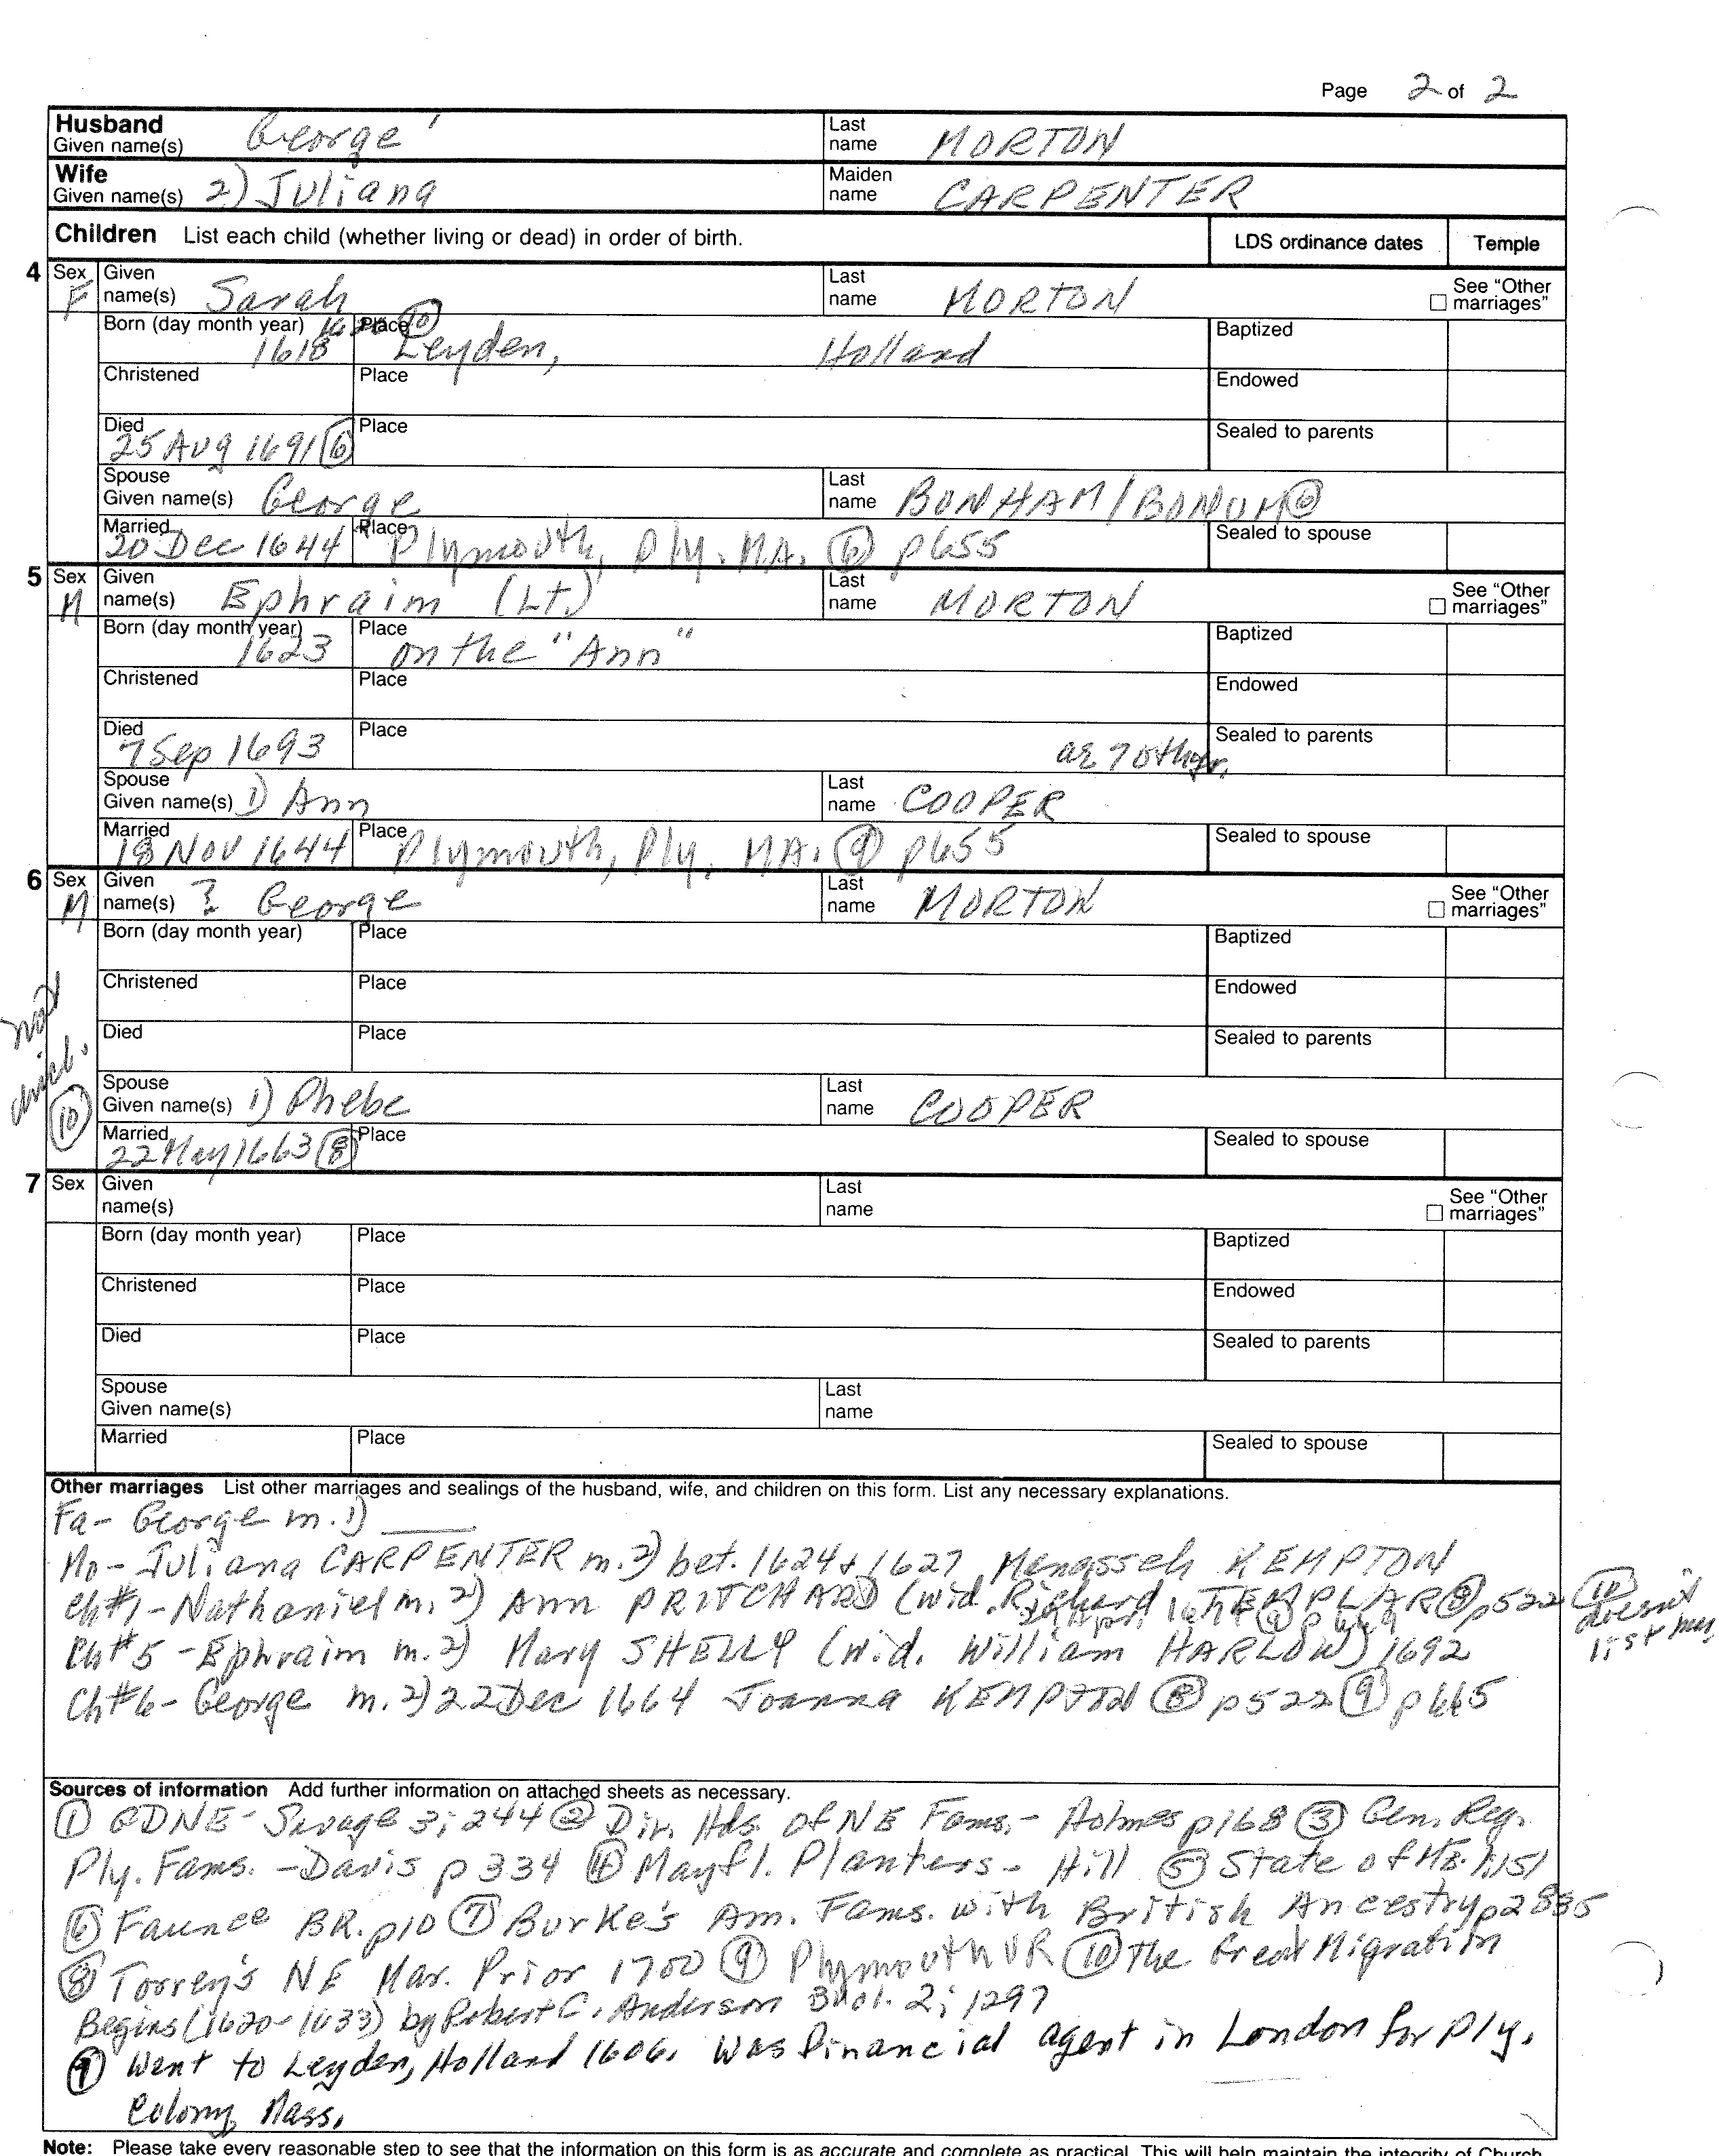 Page 2 of 2
Husband Given name(s) George' Last name MORTON
Wife Given name(s) 2) Juliana Maiden name CARPENTER
Children List each child (whether living or dead) in order of birth. LDS ordinance dates Temple
4 Sex F Given name(s) Sarah Last name MORTON See "Other marriages"
Born (day month year) 1618 Place ⑩ Leyden, Holland Baptized
Christened Place Endowed
Died 25 Aug 1691 ⑥ Place Sealed to parents
Spouse Given name(s) George Last name BONHAM/BONUM ⑥
Married 20 Dec 1644 Place Plymouth, Ply. MA. ⑥ p655 Sealed to spouse
5 Sex M Given name(s) Ephraim (Lt.) Last name MORTON See "Other marriages"
Born (day month year) 1623 Place on the "Ann" Baptized
Christened Place Endowed
Died 7 Sep 1693 Place ae 70th yr. Sealed to parents
Spouse Given name(s) 1) Ann Last name COOPER
Married 18 Nov 1644 Place Plymouth, Ply, MA. ⑨ p655 Sealed to spouse
6 Sex M Given name(s) ? George Last name MORTON See "Other marriages"
Born (day month year) Place Baptized
Christened Place Endowed
Died Place Sealed to parents
not child. ⑩
Spouse Given name(s) 1) Phebe Last name COOPER
Married 22 May 1663 ⑧ Place Sealed to spouse
7 Sex Given name(s) Last name See "Other marriages"
Born (day month year) Place Baptized
Christened Place Endowed
Died Place Sealed to parents
Spouse Given name(s) Last name
Married Place Sealed to spouse
Other marriages List other marriages and sealings of the husband, wife, and children on this form. List any necessary explanations.
Fa- George m. 1) ____
Mo- Juliana CARPENTER m. 2) bet. 1624 + 1627 Manasseh KEMPTON
Ch#1- Nathaniel m. 2) Ann PRITCHARD (wid. Richard TEMPLAR ⑧ p522 ⑩ doesn't list
Ch#5 - Ephraim m. 2) Mary SHELLY (wid. William HARLOW) 1692
Ch#6- George m. 2) 22 Dec 1664 Joanna KEMPTON ⑧ p522 ⑨ p665
Sources of information Add further information on attached sheets as necessary.
① GDNE- Savage 3; 244 ② Dir. Hds. of NE Fams. - Holmes p168 ③ Gen. Reg.
Ply. Fams. - Davis p 334 ④ Mayfl. Planters - Hill ⑤ State of ME. 1:151
⑥ Faunce BR. p10 ⑦ Burke's Am. Fams. with British Ancestry p2835
⑧ Torrey's NE Mar. Prior 1700 ⑨ Plymouth VR ⑩ The Great Migration
Begins (1620-1633) by Robert C. Anderson 3 Vol. 2; 1297
Went to Leyden, Holland 1606. Was financial agent in London for Ply.
Colony, Mass.
Note: Please take every reasonable step to see that the information on this form is as accurate and complete as practical. This will help maintain the integrity of Church